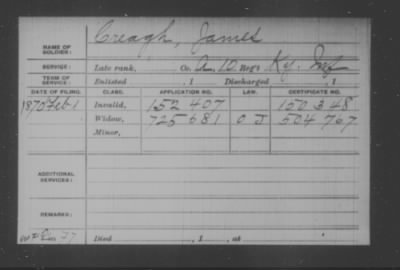 Creagh, James
NAME OF SOLDIER:
SERVICE: Late rank, Co. A, 10 Reg't Ky. Inf
TERM OF SERVICE: Enlisted , 1 Discharged , 1
DATE OF FILING. CLASS. APPLICATION NO. LAW. CERTIFICATE NO.
1870 Feb 1 Invalid, 152 407 150 348
Widow, 725 681 O J 504 767
Minor,
ADDITIONAL SERVICES:
REMARKS:
Died , 1 , at